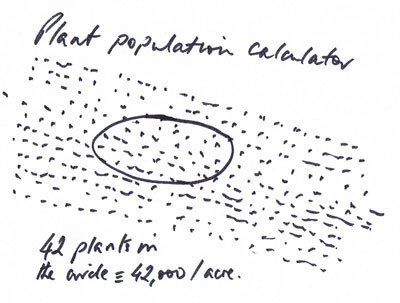 Plant population calculator
42 plants in
the circle ≡ 42,000 / acre.